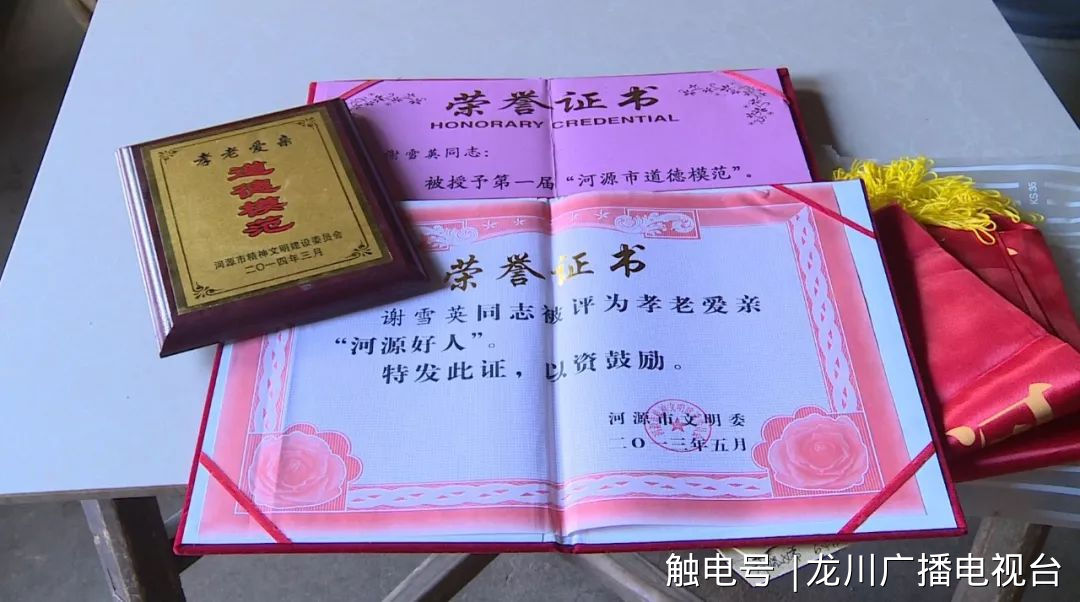 孝老爱亲
道德模范
河源市精神文明建设委员会
二〇一四年三月
荣誉证书
HONORARY CREDENTIAL
谢雪英同志：
被授予第一届“河源市道德模范”。
荣誉证书
谢雪英同志被评为孝老爱亲
“河源好人”。
特发此证，以资鼓励。
河源市文明委
二〇一三年五月
KS 35
触电号 | 龙川广播电视台